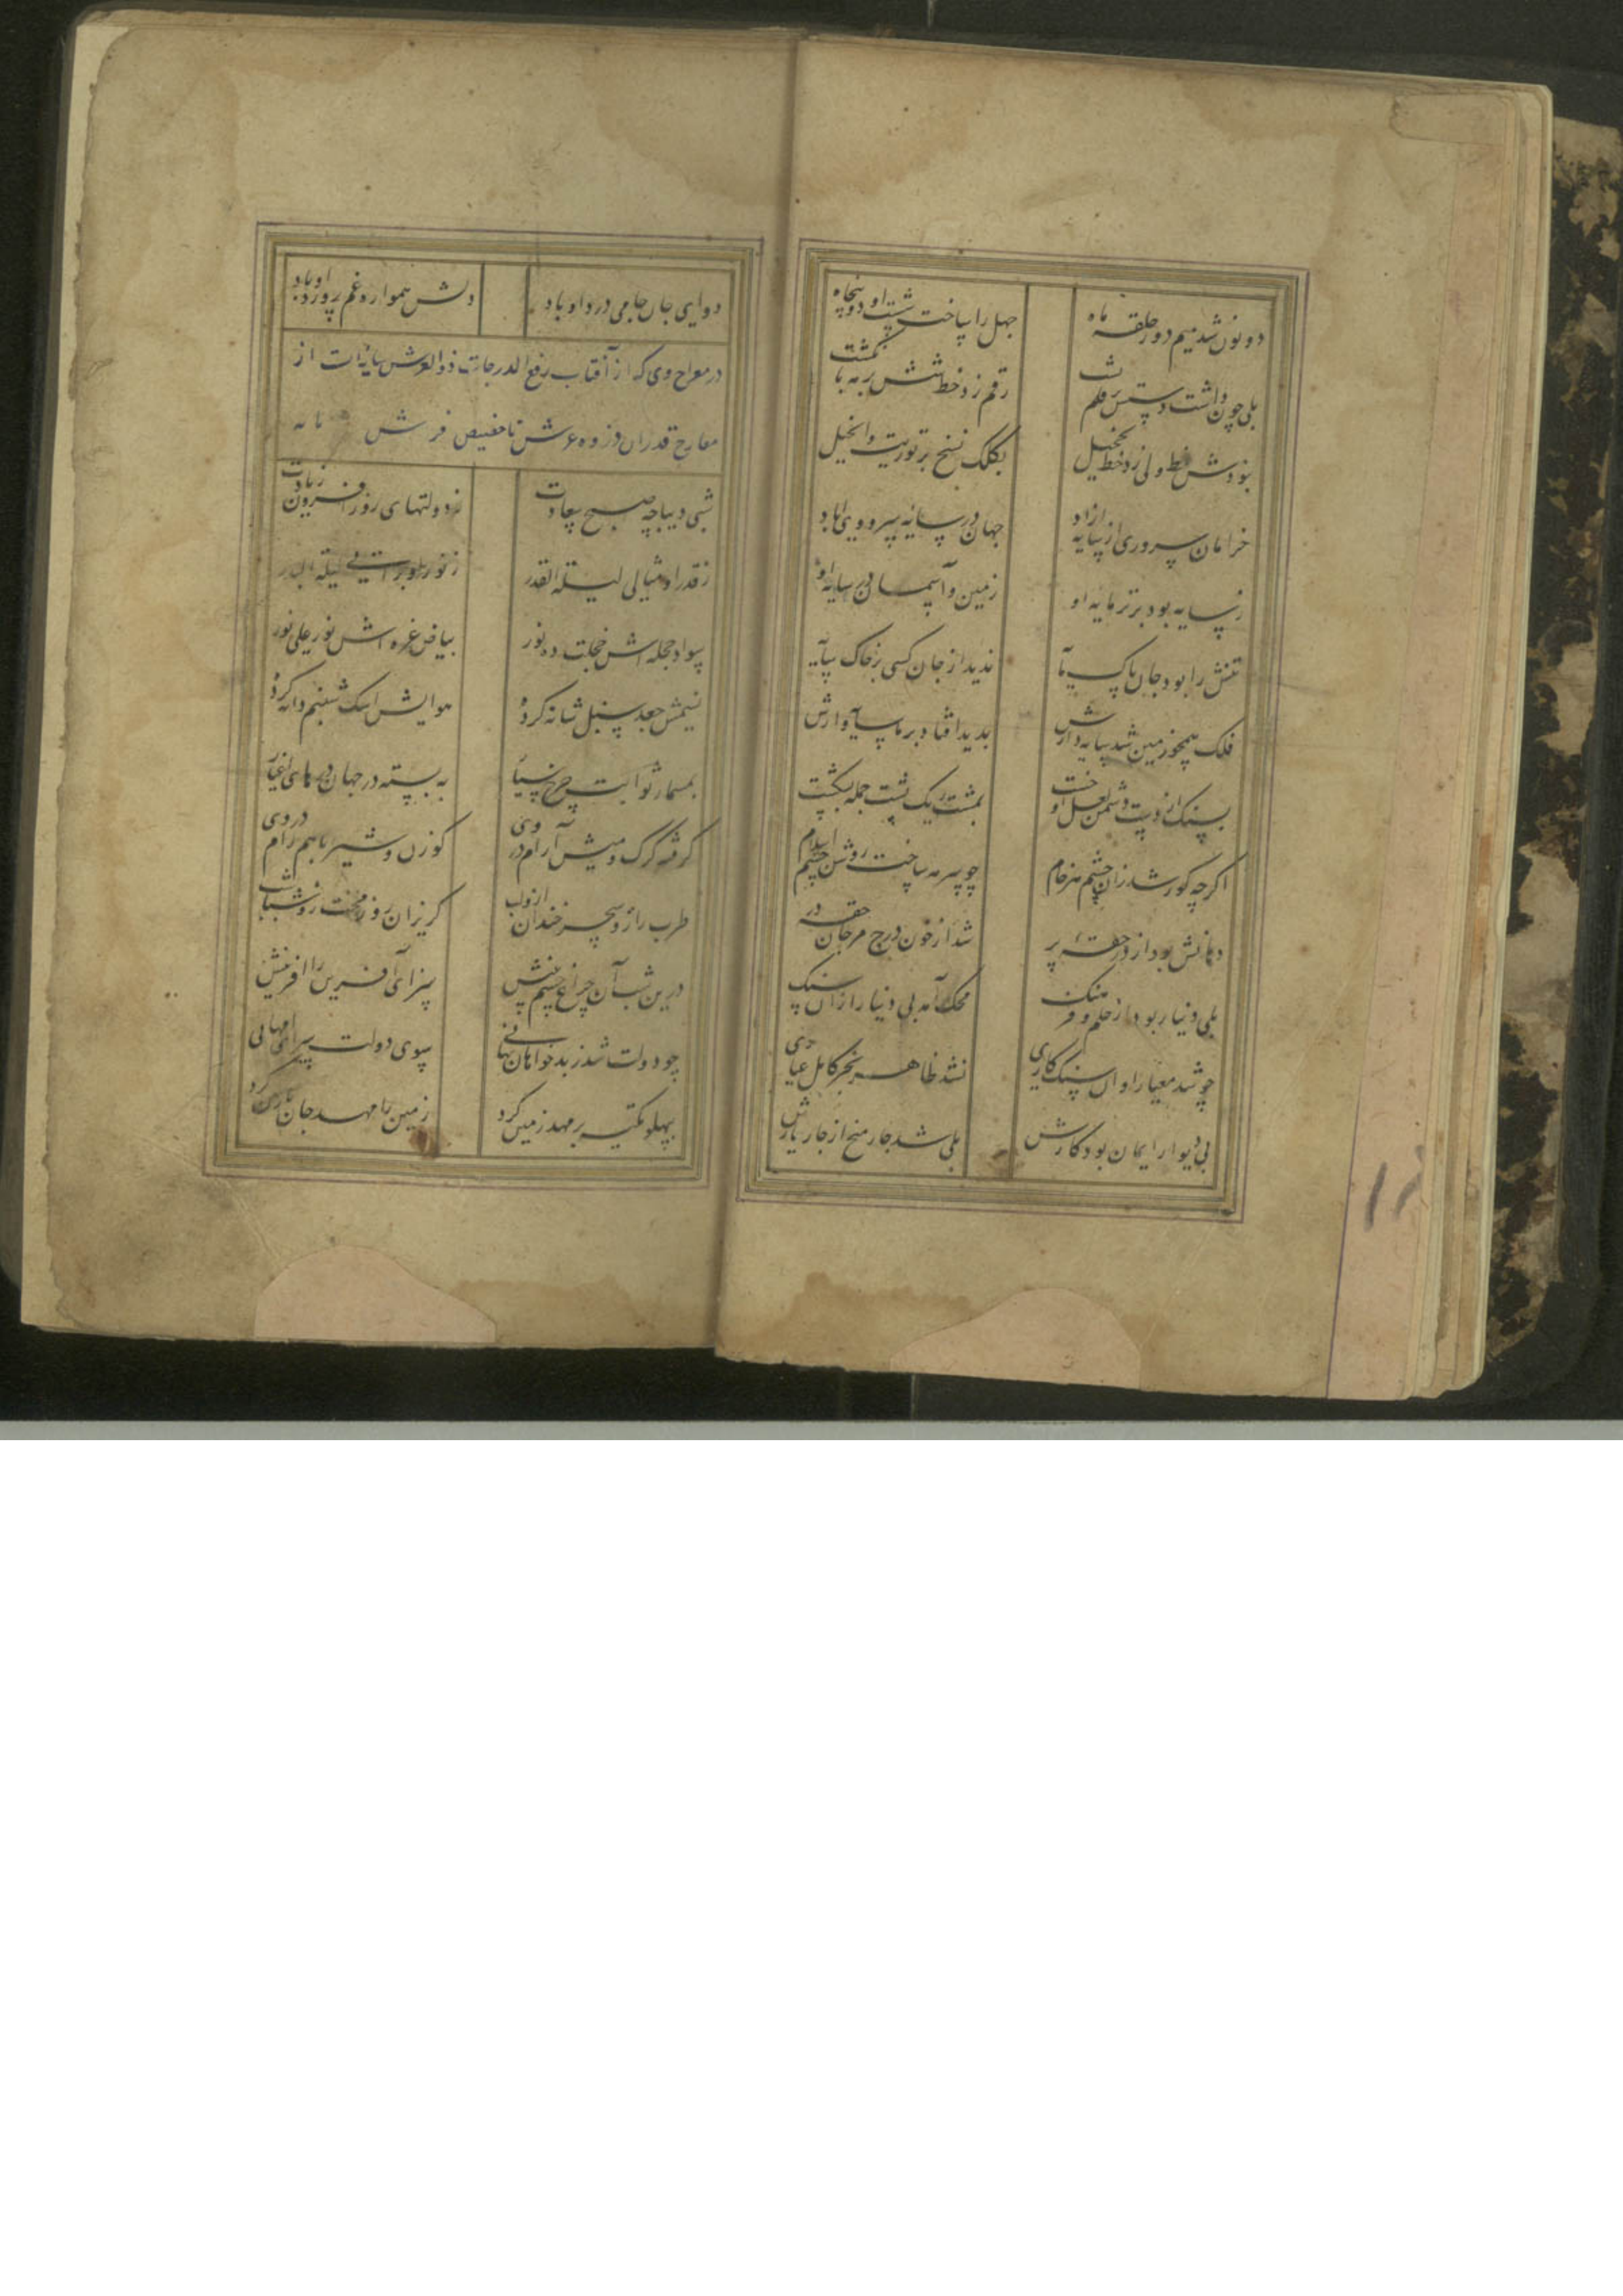 دو نون شد میم دور حلقه ماه
چهل را ساخت شست او دو پنجاه
بلی چون داشت دستش بر قلم پشت
رقم زد خط شش بر مه بانگشت
نبودش خط ولی زد خط تخییل
بکلک نسخ بر توریت و انجیل
خرامان سروری از سایه ازاد
جهان در سایه سرو وی اباد
ز سایه بود برتر مایه او
زمین و آسمان در سایه او
تنش را بود جان پاک مایه
ندید از جان کسی بر خاک سایه
فلک همچو زمین شد سایه دارش
بدید افتاد بر ما سایه وارش
بسنک از دست دشمن لعل او خست
بمشت ریک پشت جمله بشکست
اکرچه کور شد زان چشم هر خام
چو سرمه ساخت روشن چشم اسلام
دهانش بود از در حقه پر
شد از خون درج مرجان حقه در
بلی دینار بود از حلم و فرهنک
محک آمد بی دینار را زان سنک
چو شد معیار او آن سنک کاری
نشد ظاهر بجز کامل عیاری
پی دیوار ایمان بود کارش
بلی شد چار منخ از چار یارش
دوای جان جامی درد او باد
دلش همواره غم پرورد او باد
در معراج وی که از آفتاب رفیع الدرجات ذوالعرش سایه است از
معارج قدر ان ذروه عرش تا حضیض فرش پایه
شبی دیباچه صبح سعادت
ز دولتهای روز افزون زیادت
ز قدر او مثالی لیلة القدر
ز نور او براتی لیلة البدر
سواد حجله اش خجلت ده نور
بیاض غره اش نور علی نور
نسیمش جعد سنبل شانه کرده
هوایش اشک شبنم دانه کرده
بمسمار ثوابت چرخ سیار
به بسته در جهان درهای اغیار
کرفته کرک و میش آرام در وی
کوزن و شیر باهم رام در وی
طرب را روز و سحر خندان ازو لب
کریزان روز محنت زو شباشب
درین شب آن چراغ چشم بینش
سزای آفرین را افرینش
چو دولت شد ز بدخواهان نهانی
سوی دولت سرای امهانی
بپهلو تکیه بر مهد زمین کرد
زمین را مهد جان نازنین کرد